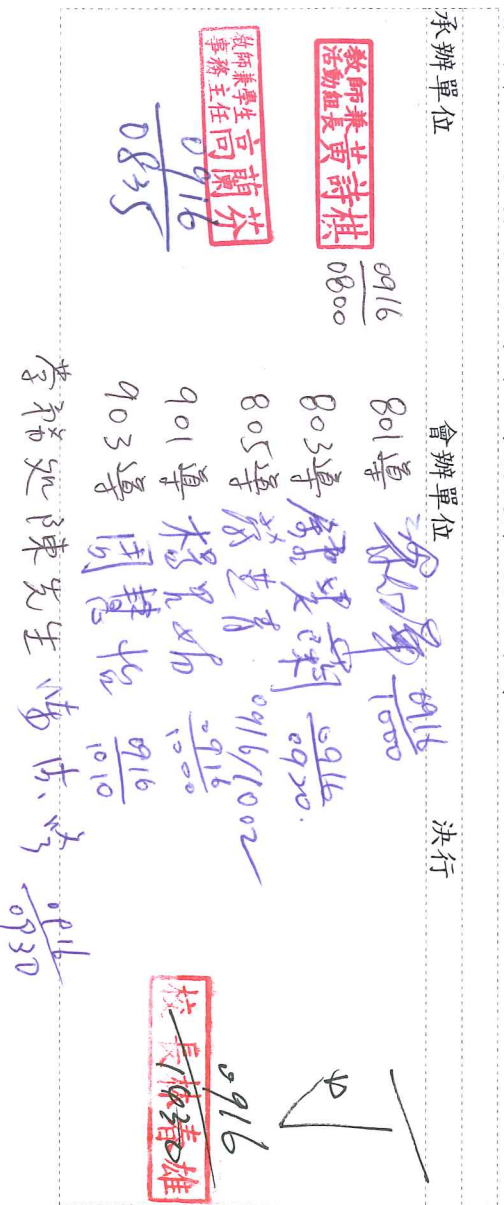 承辦單位
教師兼
活動組長黃詩棋
0916
0800
教師兼學生
事務主任高蘭芬
0916
0835
會辦單位
801導
0916
1000
803導
0916
0920.
805導
0916/1002
901導
0916
1000
903導 周慧怡
0916
1010
學務處陳先生
0916
0930
決行
校長林春雄
0916